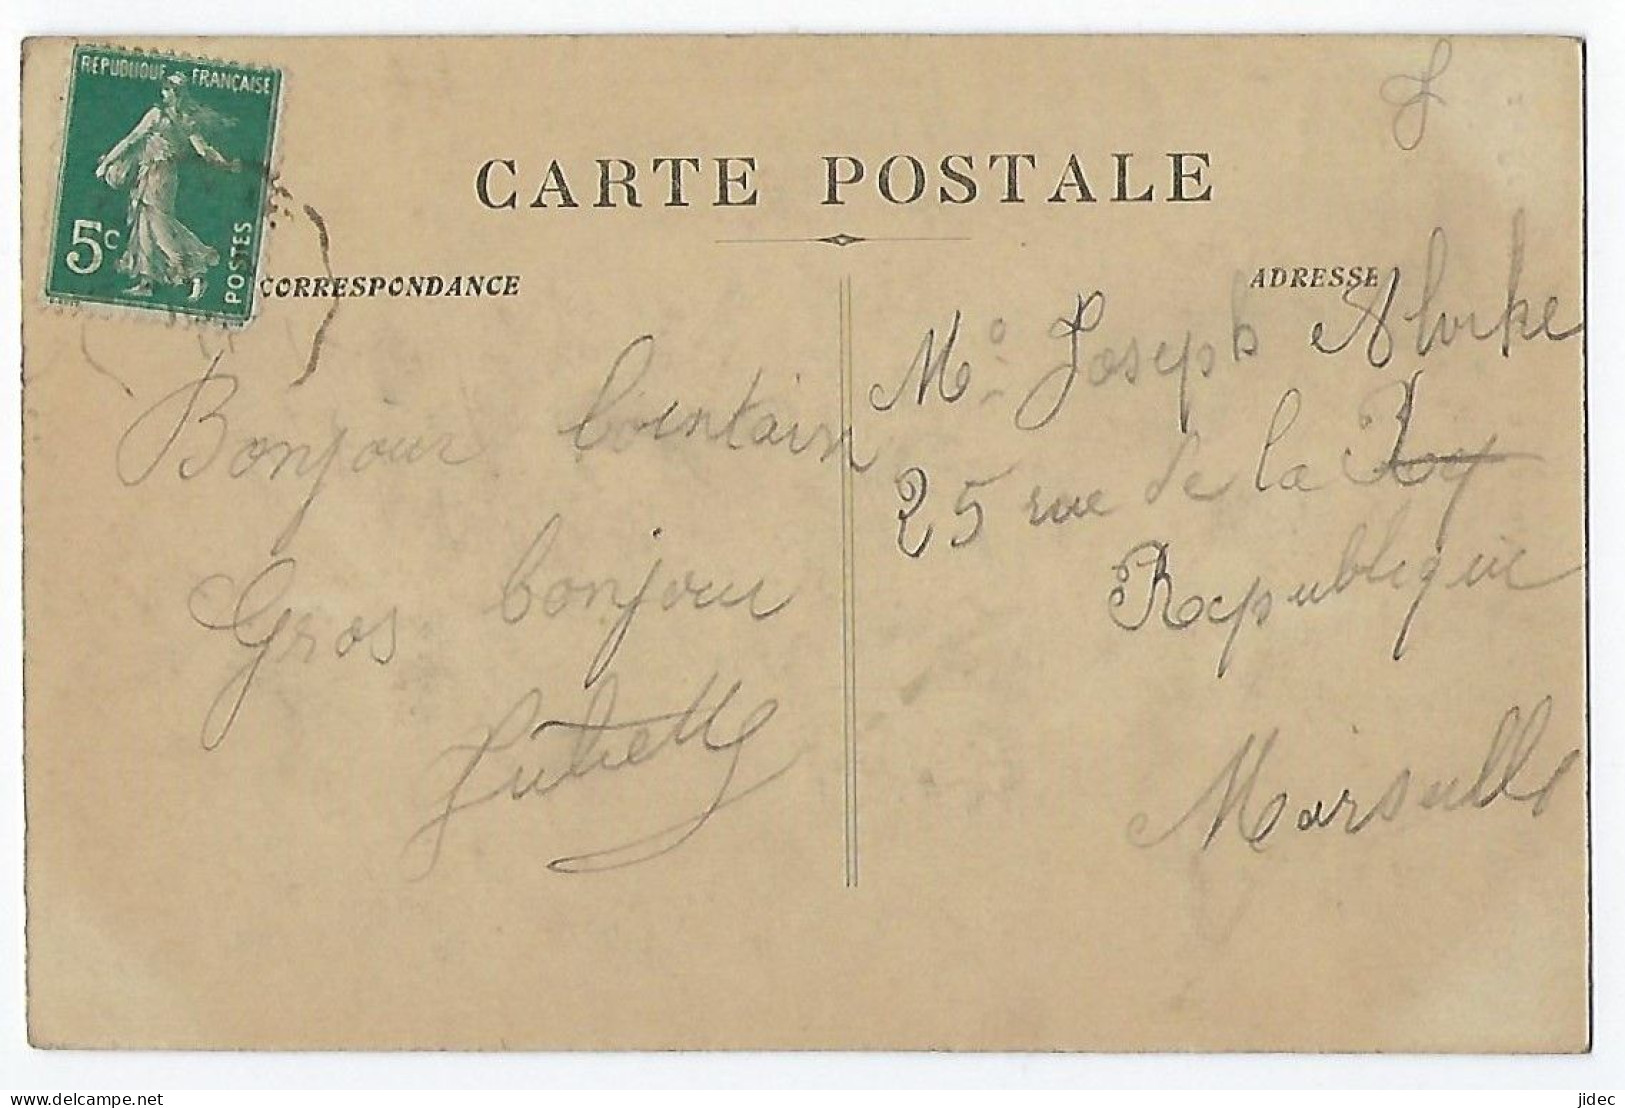 REPUBLIQUE FRANÇAISE
5c
POSTES
CARTE POSTALE
CORRESPONDANCE
ADRESSE
Bonjour lointain
Gros bonjour
Juliette
Mr Joseph
25 rue de la Roy
Republique
Marseille
delcampe.net
jidec